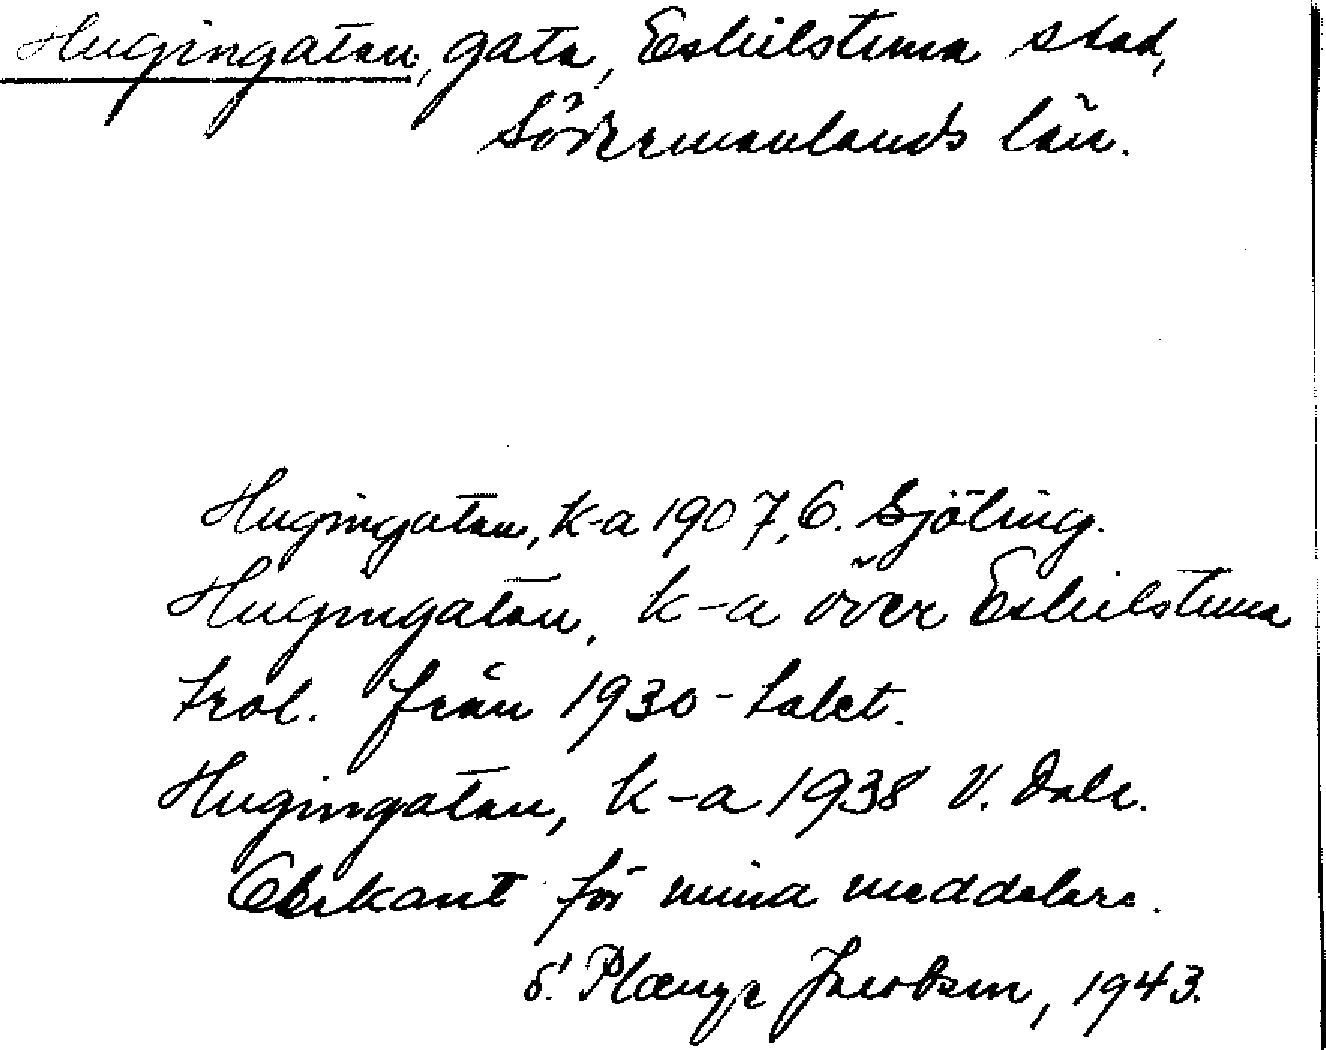 Hugingatan, gata, Eskilstuna stad,
Södermanlands län.
Hugingatan, k-a 1907, C. Sjöling.
Hugingatan, k-a över Eskilstuna
trol. från 1930-talet.
Hugingatan, k-a 1938 V. Dale.
Obekant för mina meddelare.
Jacobsen, 1943.